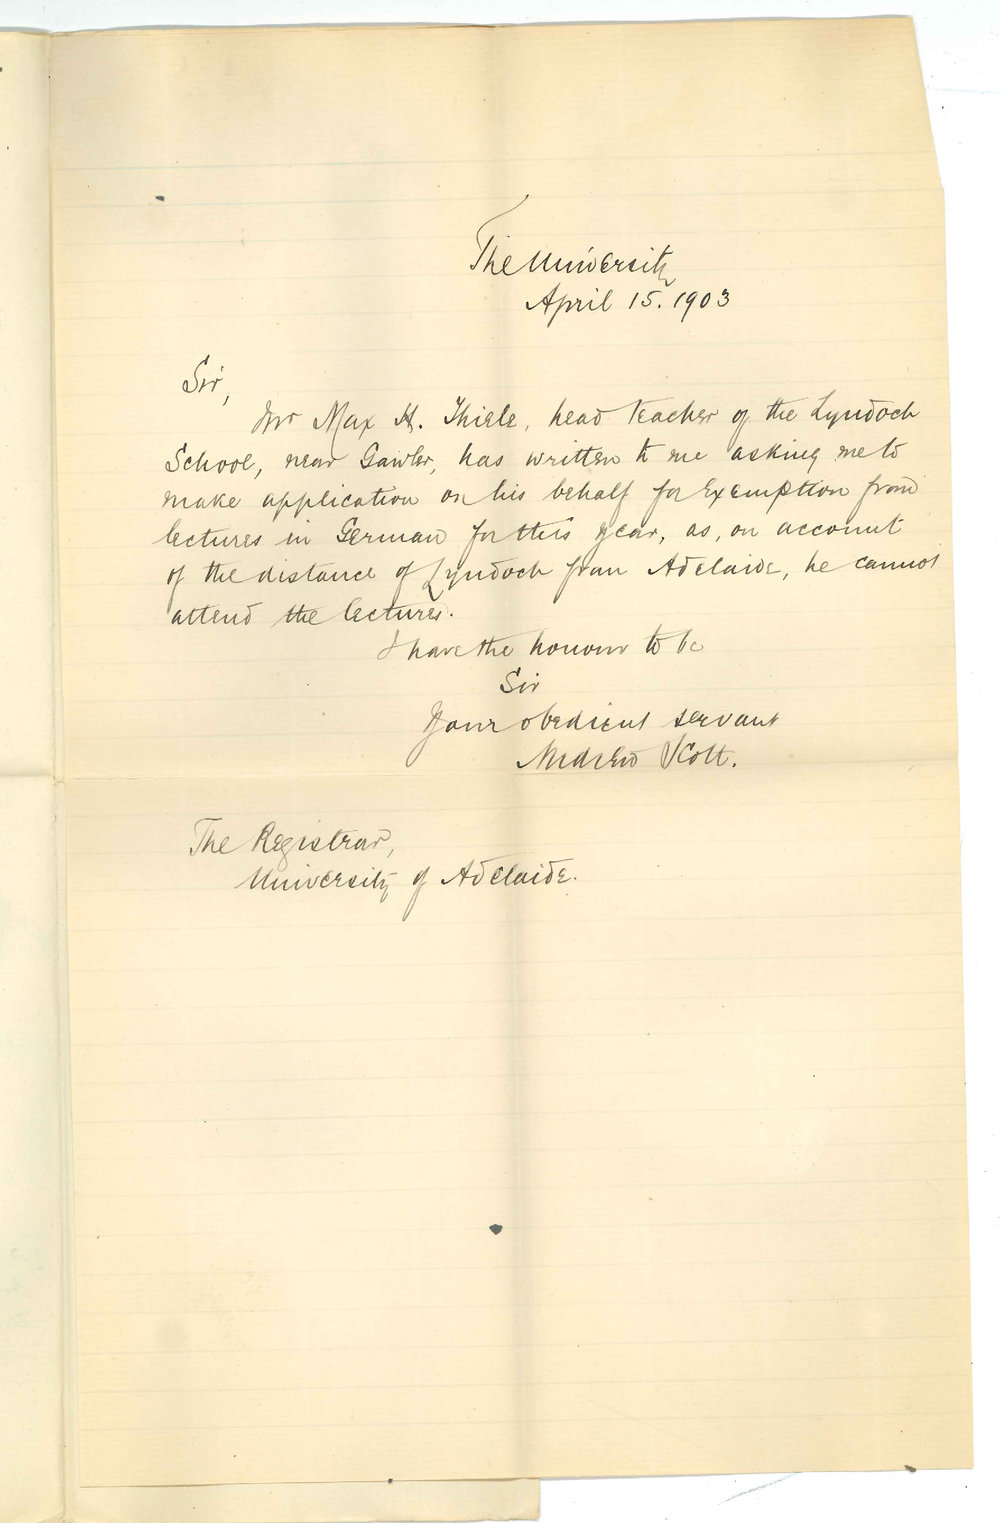 The University
April 15. 1903
Sir,
Mr Max H. Thiele, head teacher of the Lyndoch
School, near Gawler, has written to me asking me to
make application on his behalf for exemption from
lectures in German for this year, as, on account
of the distance of Lyndoch from Adelaide, he cannot
attend the lectures.
I have the honour to be
Sir
Your obedient servant
Andrew Scott.
The Registrar,
University of Adelaide.